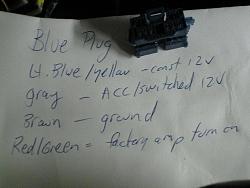 Blue Plug
Lt. Blue/yellow - const 12V
Gray - ACC/switched 12V
Brown - ground
Red/Green = factory amp turn on